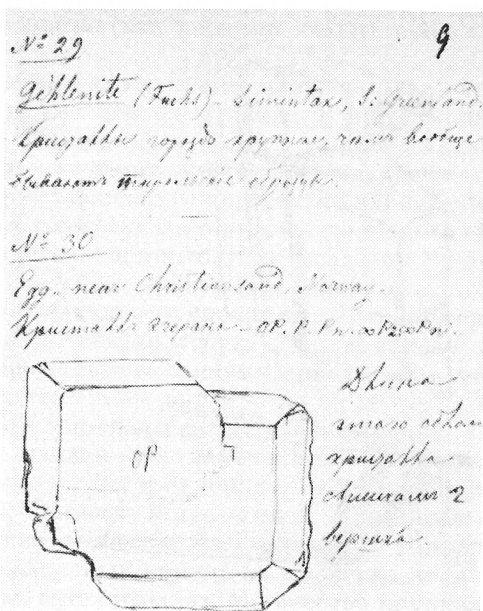 № 29
9
Gehlenite (Fuchs) - S: Greenland.
Кристаллы гораздо крупнее, чемъ вообще
бываютъ тирольскіе образцы.
№ 30
Egg near Christiansand, Norway.
Кристаллъ - OP. P. Pn. ∞P2.∞Pn.
OP
Длина
этого
кристалла
2
вершка.